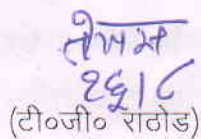 २६/८
(टी०जी० राठोड)